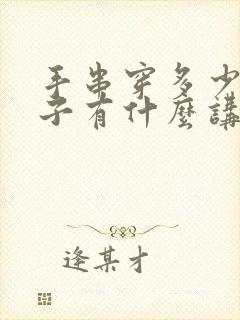 手串穿多少
子有什麼講
逢某才